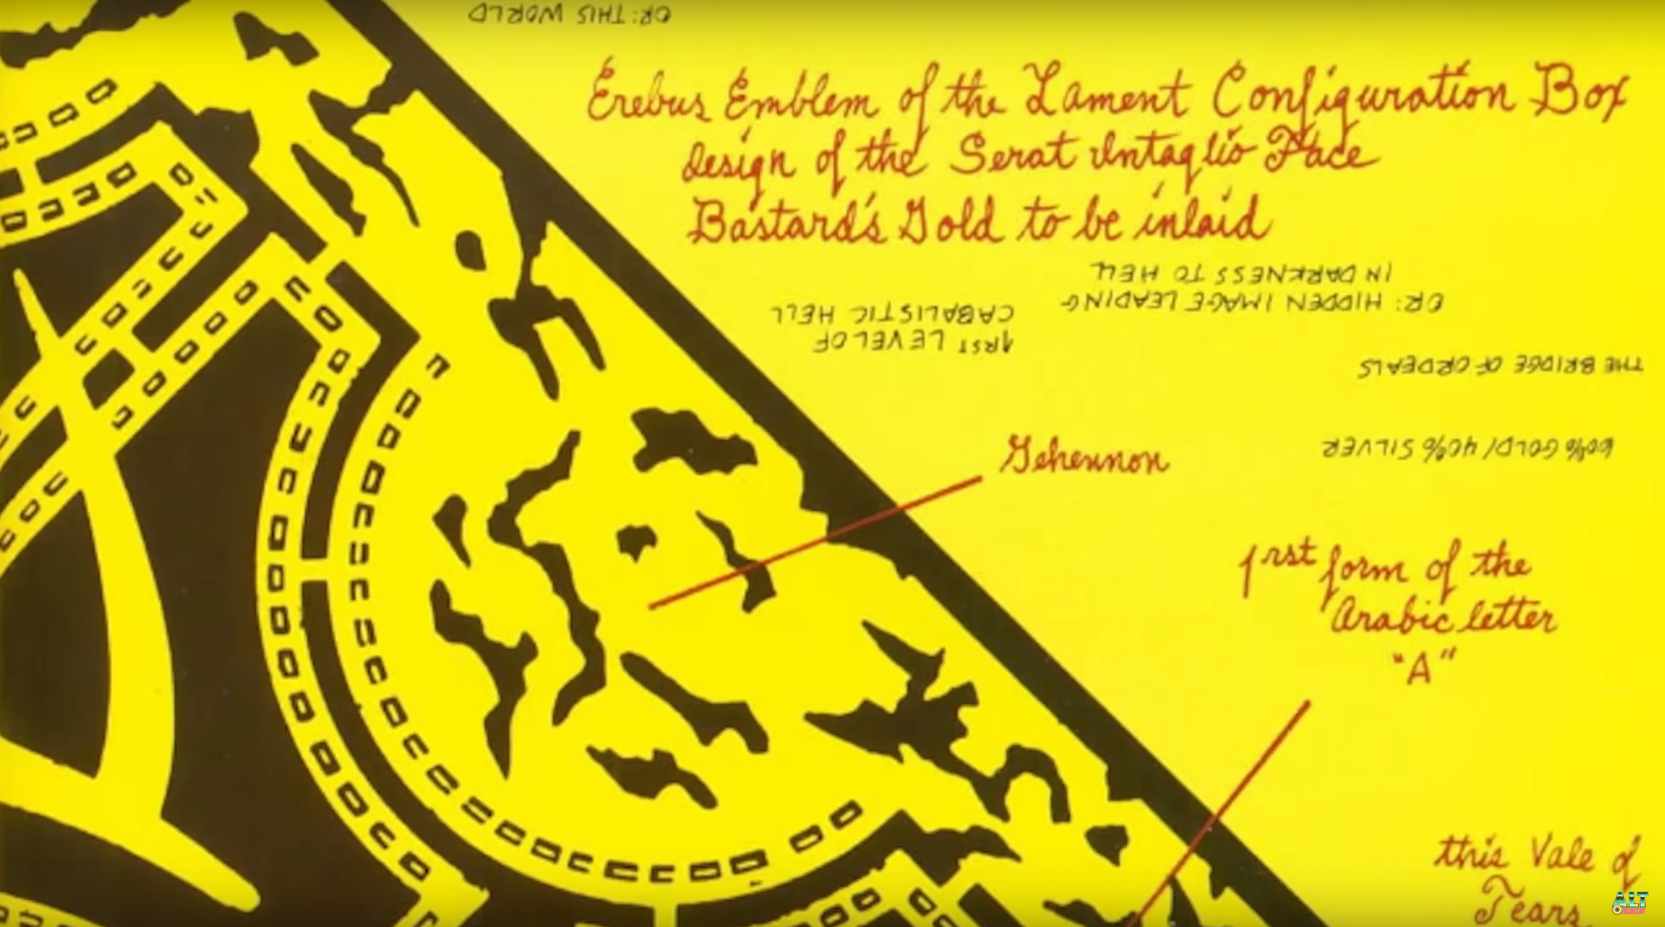 OR: THIS WORLD
Erebus Emblem of the Lament Configuration Box
design of the Serat Intaglio Face
Bastard's Gold to be inlaid
IN DARKNESS TO HELL
OR: HIDDEN IMAGE LEADING
CABALISTIC HELL
1RST LEVEL OF
THE BRIDGE OF ORDEALS
60% GOLD/40% SILVER
Gehennon
1rst form of the
Arabic letter
"A"
this Vale of
Tears
ALT